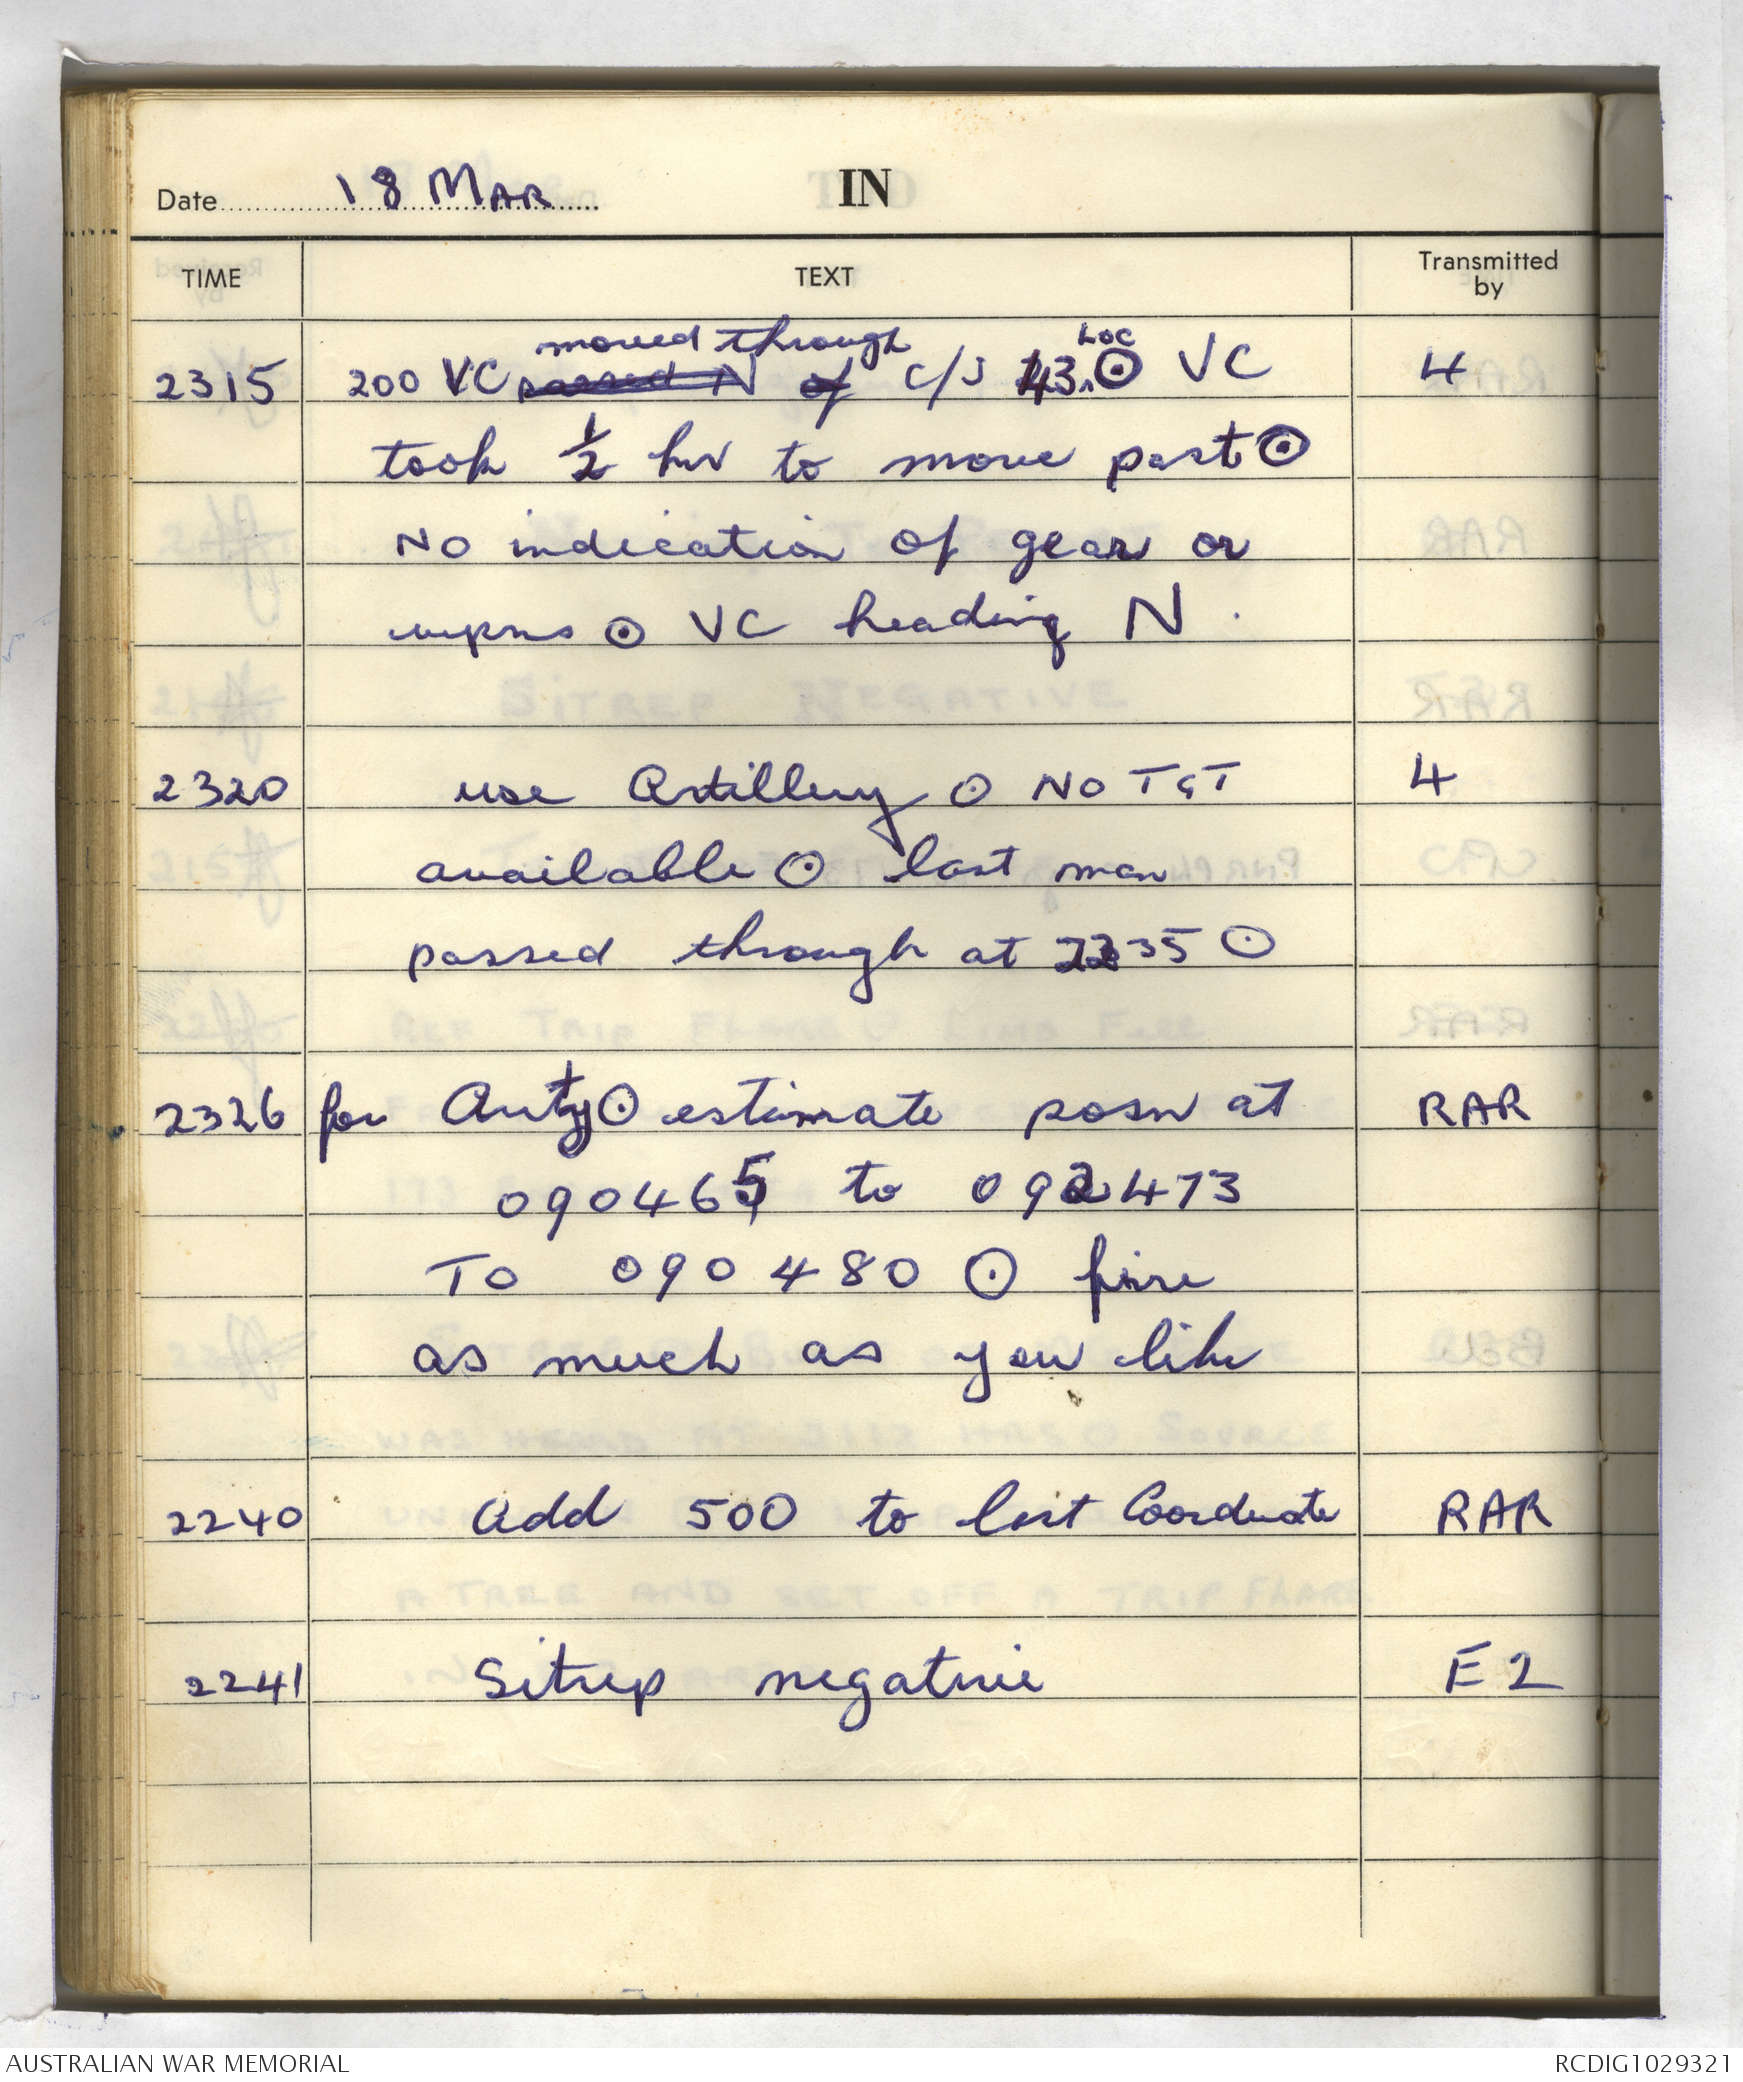 Date 18 MAR IN
TIME TEXT Transmitted by
moved through LOC
2315 200 VC passed N of C/S 43 ⊙ VC 4
took ½ hr to move past ⊙
NO indication of gear or
wepns ⊙ VC heading N .
2320 use Artillery ⊙ NO TGT 4
available ⊙ last man
passed through at 2235 ⊙
2326 for Arty ⊙ estimate posn at RAR
090465 to 092473
TO 090480 ⊙ fire
as much as you like
2240 Add 500 to last Coordinate RAR
2241 Sitrep negative E2
AUSTRALIAN WAR MEMORIAL RCDIG1029321